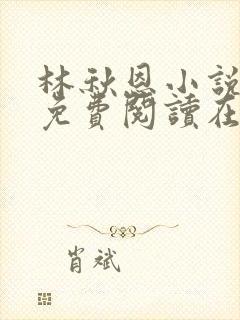 林秋恩小說
免費閱讀在
肖斌